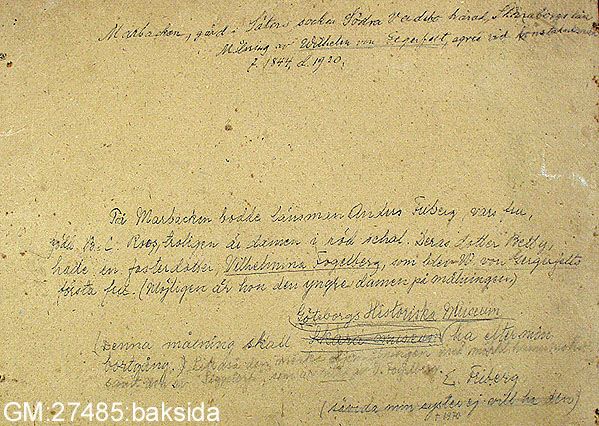 Marbacken, gård i Säters socken Södra Vadsbo härad, Skaraborgs län
Målning av Wilhelm von Gegerfelt,
f. 1844, d. 1920.
På Marbacken bodde länsman Anders Friberg, vars fru,
född B. C. Roos, troligen är damen i röd schal. Deras dotter Betty,
hade en fosterdotter Vilhelmina Fogelberg, som blev W. von Gegerfelts
första fru. (Möjligen är hon den yngre damen på målningen)
Göteborgs Historiska Museum
(Denna målning skall Skara museum ha efter min
bortgång.)
E. Friberg
(såvida min syster ej vill ha den)
GM:27485.baksida